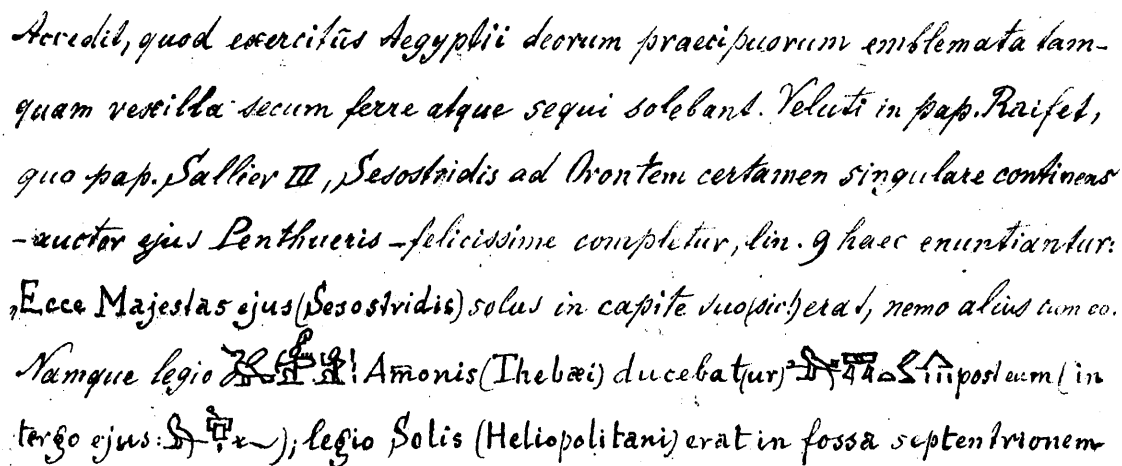 Accedit, quod exercitûs Aegyptii deorum praecipuorum emblemata tam-
quam vexilla secum ferre atque sequi solebant. Veluti in pap. Raifet,
quo pap. Sallier III, Sesostridis ad Orontem certamen singulare continens
– auctor ejus Penthueris – felicissime completur, lin. 9 haec enuntiantur:
„Ecce Majestas ejus (Sesostridis) solus in capite suo (sic!) erat, nemo alius cum eo.
Namque legio Amonis (Thebæi) ducebat(ur) post eum (in
tergo ejus: ); legio Solis (Heliopolitani) erat in fossa septentrionem